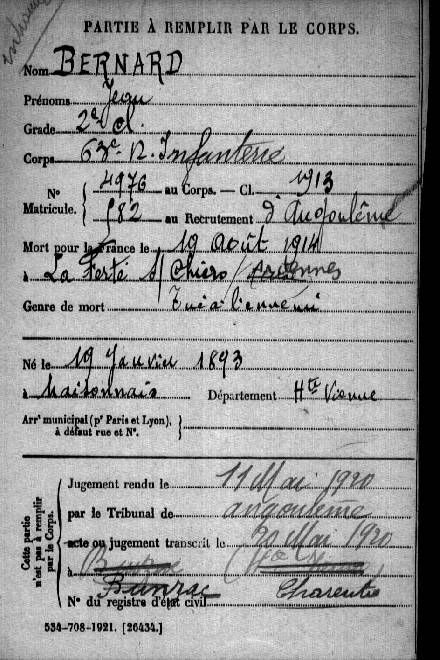 PARTIE À REMPLIR PAR LE CORPS.
Nom BERNARD
Prénoms Jean
Grade 2e cl.
Corps 63e R. Infanterie
N° Matricule. { 4976 au Corps. — Cl. 1913
582 au Recrutement d'Angoulême
Mort pour la France le 19 Août 1914
à La Ferté S/ Chiers (Ardennes
Genre de mort Tué à l'ennemi
Né le 19 Janvier 1893
à Maisonnais Département Hte Vienne
Arrt municipal (pr Paris et Lyon),
à défaut rue et N°.
Cette partie n'est pas à remplir par le Corps.
Jugement rendu le 11 Mai 1920
par le Tribunal de angoulême
acte ou jugement transcrit le 20 Mai 1920
à
Bunzac Charente
N° du registre d'état civil
534-708-1921. [26434.]